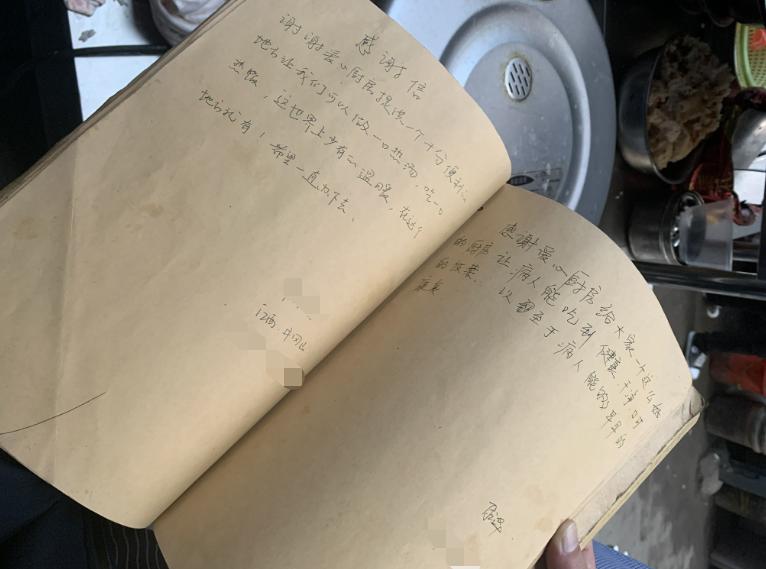 感谢信
谢谢爱心厨房提供一个十分便利的
地方让我们可以做一口热汤,吃一口
热饭,这世界上少有的温暖,在这个
地方就有!希望一直办下去。
江西
感谢爱心厨房给大家一个这么好
的厨房让病人能吃到健康、干净可
的饭菜. 以至于病人能够早早的
康复